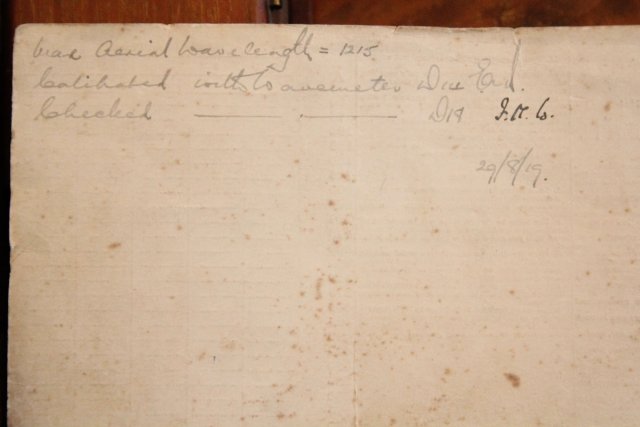 Max Aerial Wavelength = 1215
Calibrated with Wavemeter D14
Checked ——— ——— D14 J.H.W.
29/8/19.